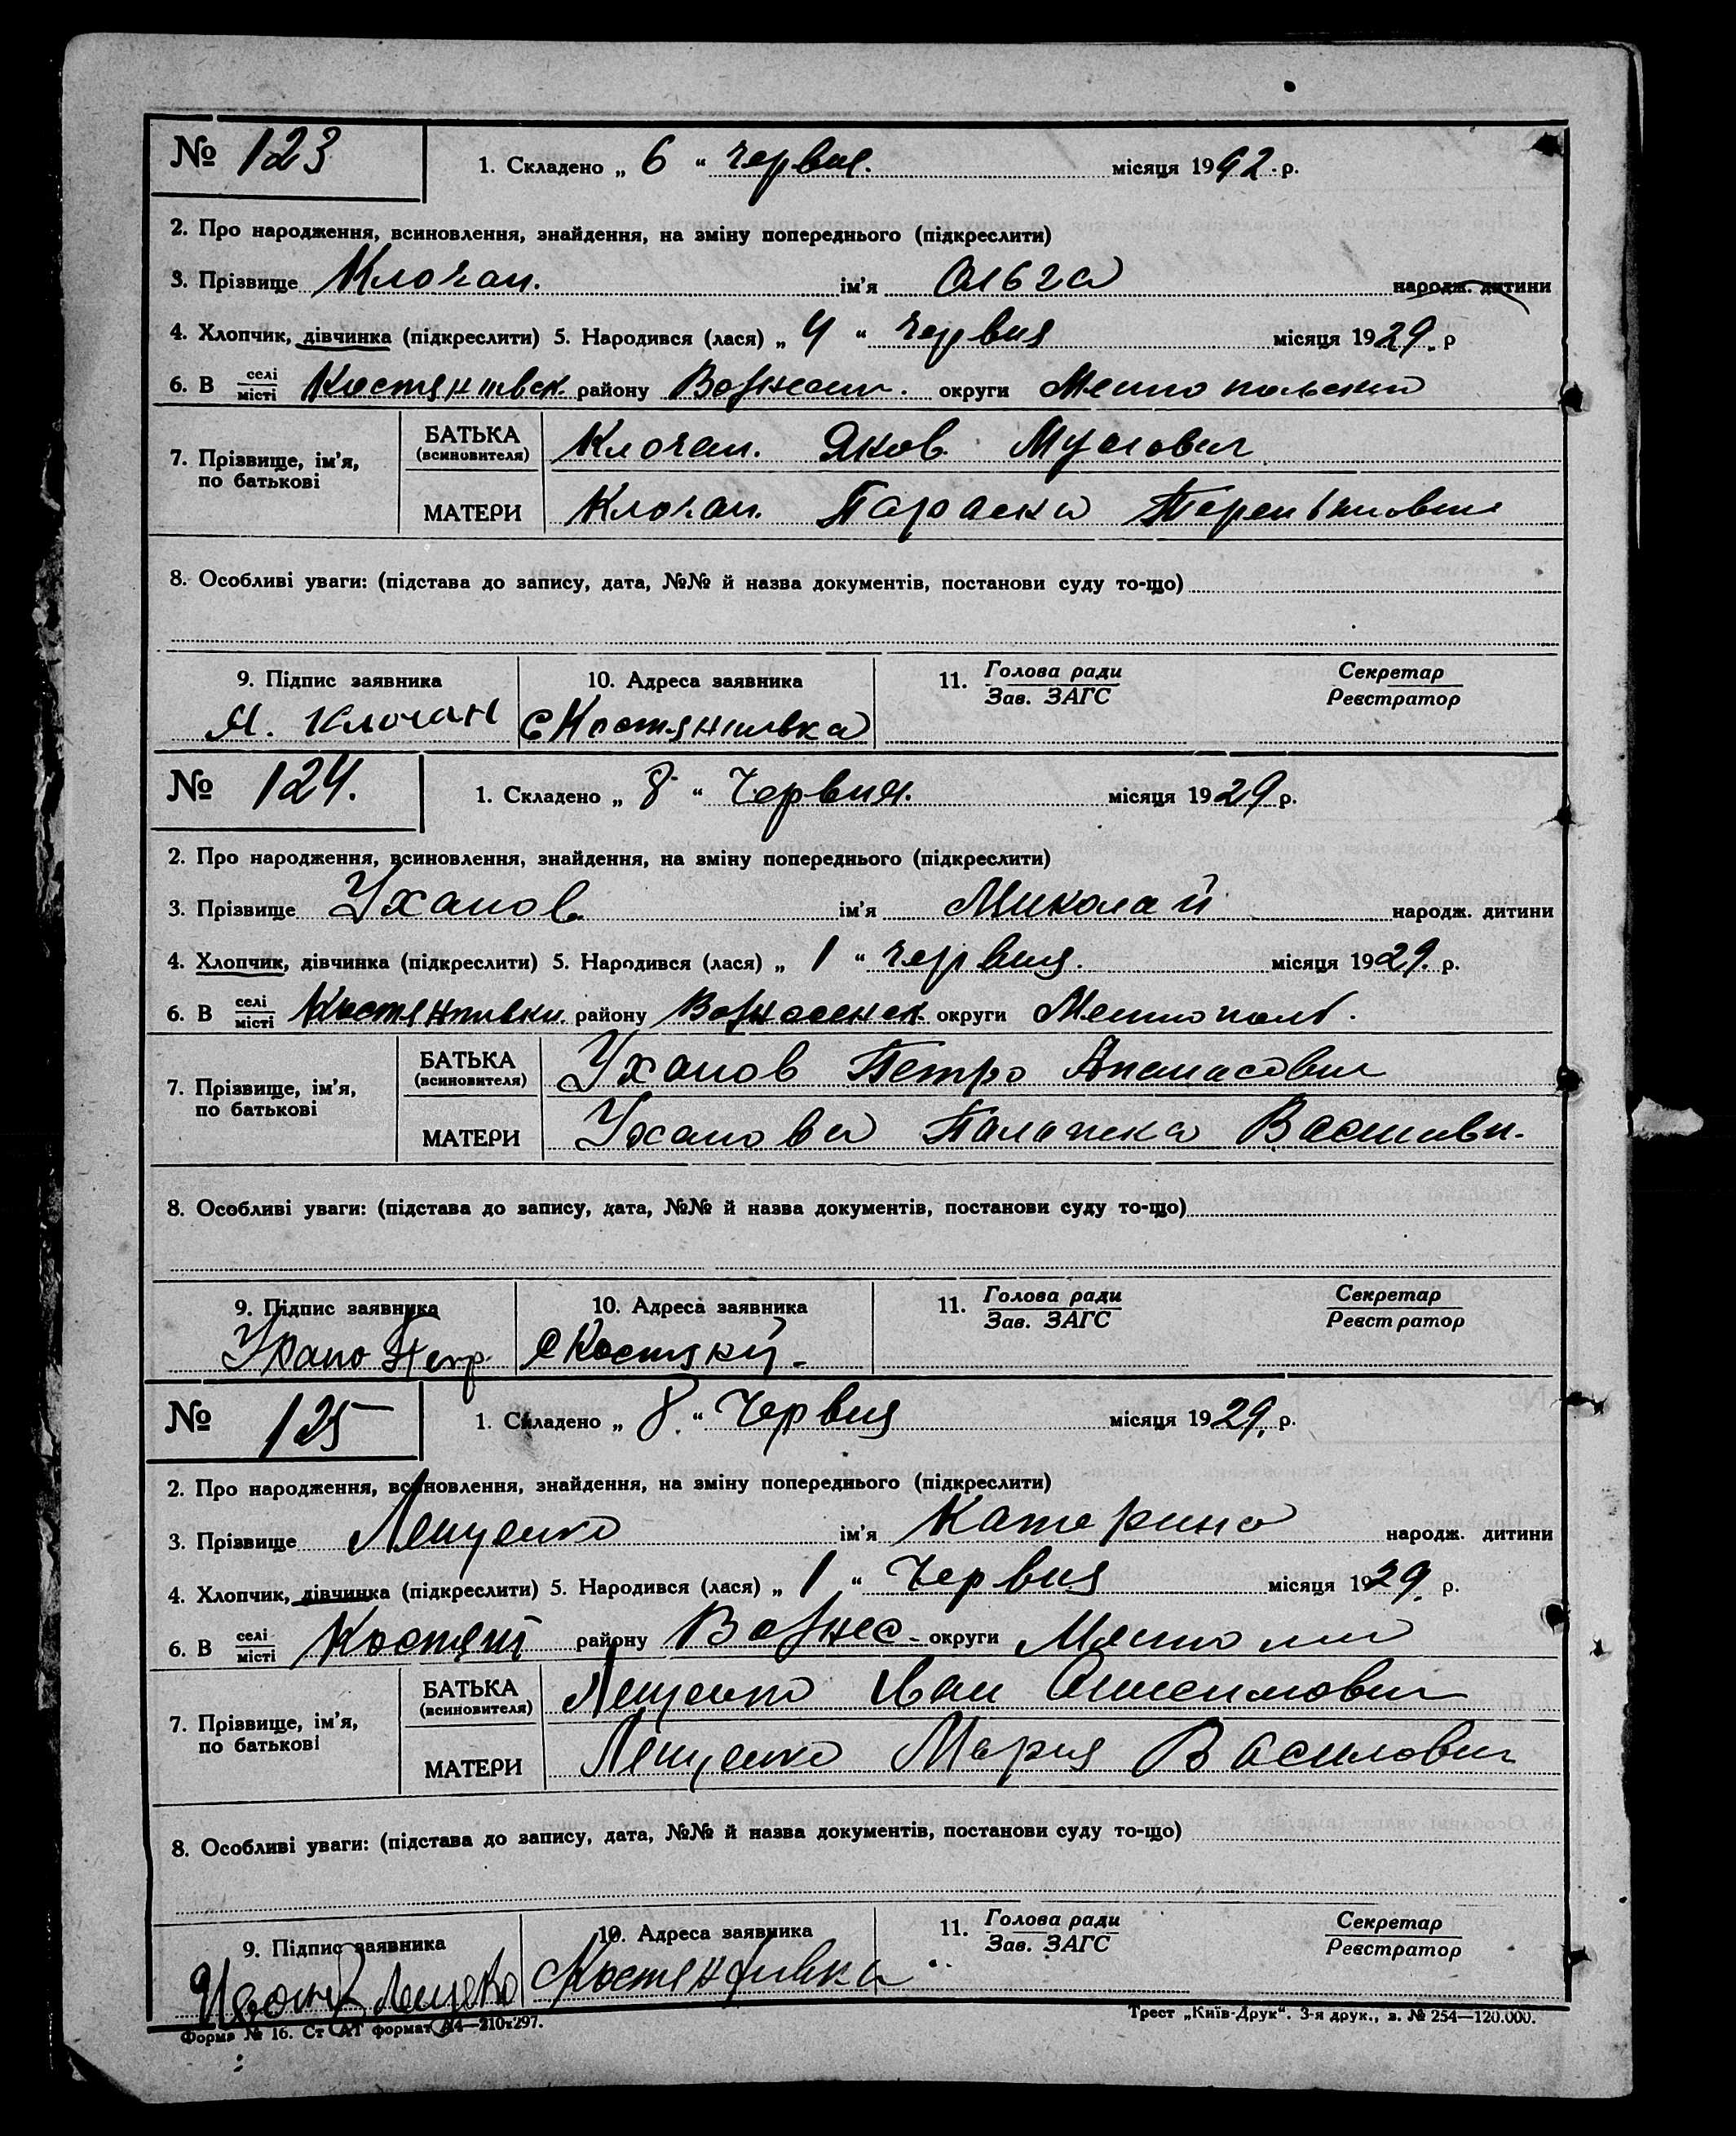 № 123
1. Складено „ 6 “ червня. місяця 1992 р.
2. Про народження, всиновлення, знайдення, на зміну попереднього (підкреслити)
3. Прізвище Клочан. ім'я Ольга народж. дитини
4. Хлопчик, дівчинка (підкреслити) 5. Народився (лася) „ 4 “ червня місяця 1929. р
6. В селі місті Костянтивск. району Вознесен. округи
БАТЬКА (всиновителя) Клочан. Яков
7. Прізвище, ім'я, по батькові
МАТЕРИ Клочан. Параска
8. Особливі уваги: (підстава до запису, дата, №№ й назва документів, постанови суду то-що)
9. Підпис заявника 10. Адреса заявника 11. Голова ради Зав. ЗАГС Секретар Реєстратор
Я. Клочан с Костянтивка
№ 124.
1. Складено „ 8 “ Червня. місяця 1929 р.
2. Про народження, всиновлення, знайдення, на зміну попереднього (підкреслити)
3. Прізвище Уханов ім'я Миколай народж. дитини
4. Хлопчик, дівчинка (підкреслити) 5. Народився (лася) „ 1 “ червня. місяця 1929. р.
6. В селі місті Костянтивки району Вознесенск округи Мелитополь.
БАТЬКА (всиновителя) Уханов Петро Апанасович
7. Прізвище, ім'я, по батькові
МАТЕРИ Уханова Палажка Василивн.
8. Особливі уваги: (підстава до запису, дата, №№ й назва документів, постанови суду то-що)
9. Підпис заявника 10. Адреса заявника 11. Голова ради Зав. ЗАГС Секретар Реєстратор
№ 125
1. Складено „ 8. “ Червня місяця 1929. р.
2. Про народження, всиновлення, знайдення, на зміну попереднього (підкреслити)
3. Прізвище Лещенко ім'я Катерина народж. дитини
4. Хлопчик, дівчинка (підкреслити) 5. Народився (лася) „ 1 “ Червня місяця 1929. р.
6. В селі місті Костянт району Вознес. округи
БАТЬКА (всиновителя) Лещенко Іван Онисимович
7. Прізвище, ім'я, по батькові
МАТЕРИ Лещенко Мария Василович
8. Особливі уваги: (підстава до запису, дата, №№ й назва документів, постанови суду то-що)
9. Підпис заявника 10. Адреса заявника 11. Голова ради Зав. ЗАГС Секретар Реєстратор
Костянтивка
Форма № 16. Ст АТ формат А4—210х297. Трест „Київ-Друк“. 3-я друк., з. № 254—120.000.